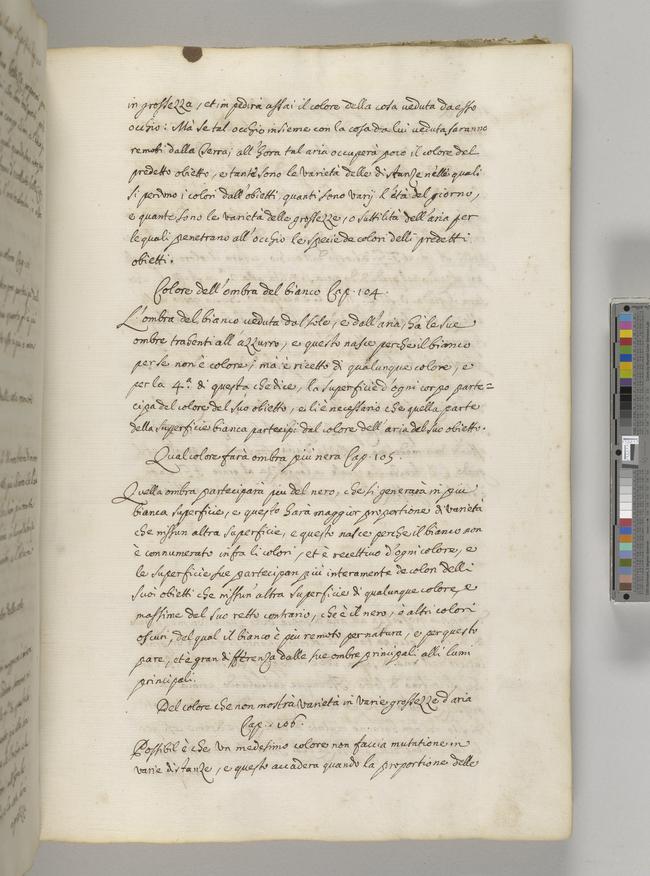 in grossezza, et impedirà assai il colore della cosa veduta da esso
occhio: Mà se tal occhio insieme con la cosa da lui veduta saranno
remoti dalla Terra; all'hora tal aria occuperà poco il colore del
predetto obietto, e tante sono le varietà delle distanze nelle quali
si perdono i colori dall'obietti, quanti sono varij l'età del giorno,
e quante sono le varietà delle grossezze, o suttilità dell'aria per
le quali penetrano all'occhio le specie de colori delli predetti
obietti.
Colore dell'ombra del bianco Cap. 104.
L'ombra del bianco veduta dal sole, e dall'aria, hà le sue
ombre trahenti all'azzurro, e questo nasce perche il bianco
per se non è colore, mà è ricetto di qualunque colore, e
per la 4.ª di questa che dice, la superficie d'ogni corpo parte=
cipa del colore del suo obietto, e li è necessario che quella parte
della superficie bianca partecipi dal colore dell'aria del suo obietto.
Qual colore farà ombra più nera Cap. 105.
Quella ombra parteciparà più del nero, che si generarà in più
bianca superficie, e questo harà maggior proportione di varietà
che nissun altra superficie, e questo nasce perche il bianco non
è connumerato infra li colori, et è recettivo d'ogni colore, e
le superficie sue partecipan più interamente de colori delli
suoi obietti che nissun'altra superficie di qualunque colore, e
massime del suo retto contrario, che è il nero, o altri colori
oscuri, del qual il bianco è più remoto per natura, e per questo
pare, et è gran differenza dalle sue ombre principali alli lumi
principali.
Del colore che non mostra varietà in varie grossezze d'aria
Cap. 106.
Possibil è che un medesimo colore non faccia mutatione in
varie distanze, e questo accaderà quando la proportione delle